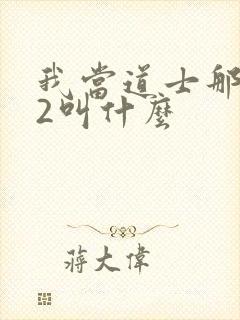 我當道士那
2叫什麼
蔣大偉